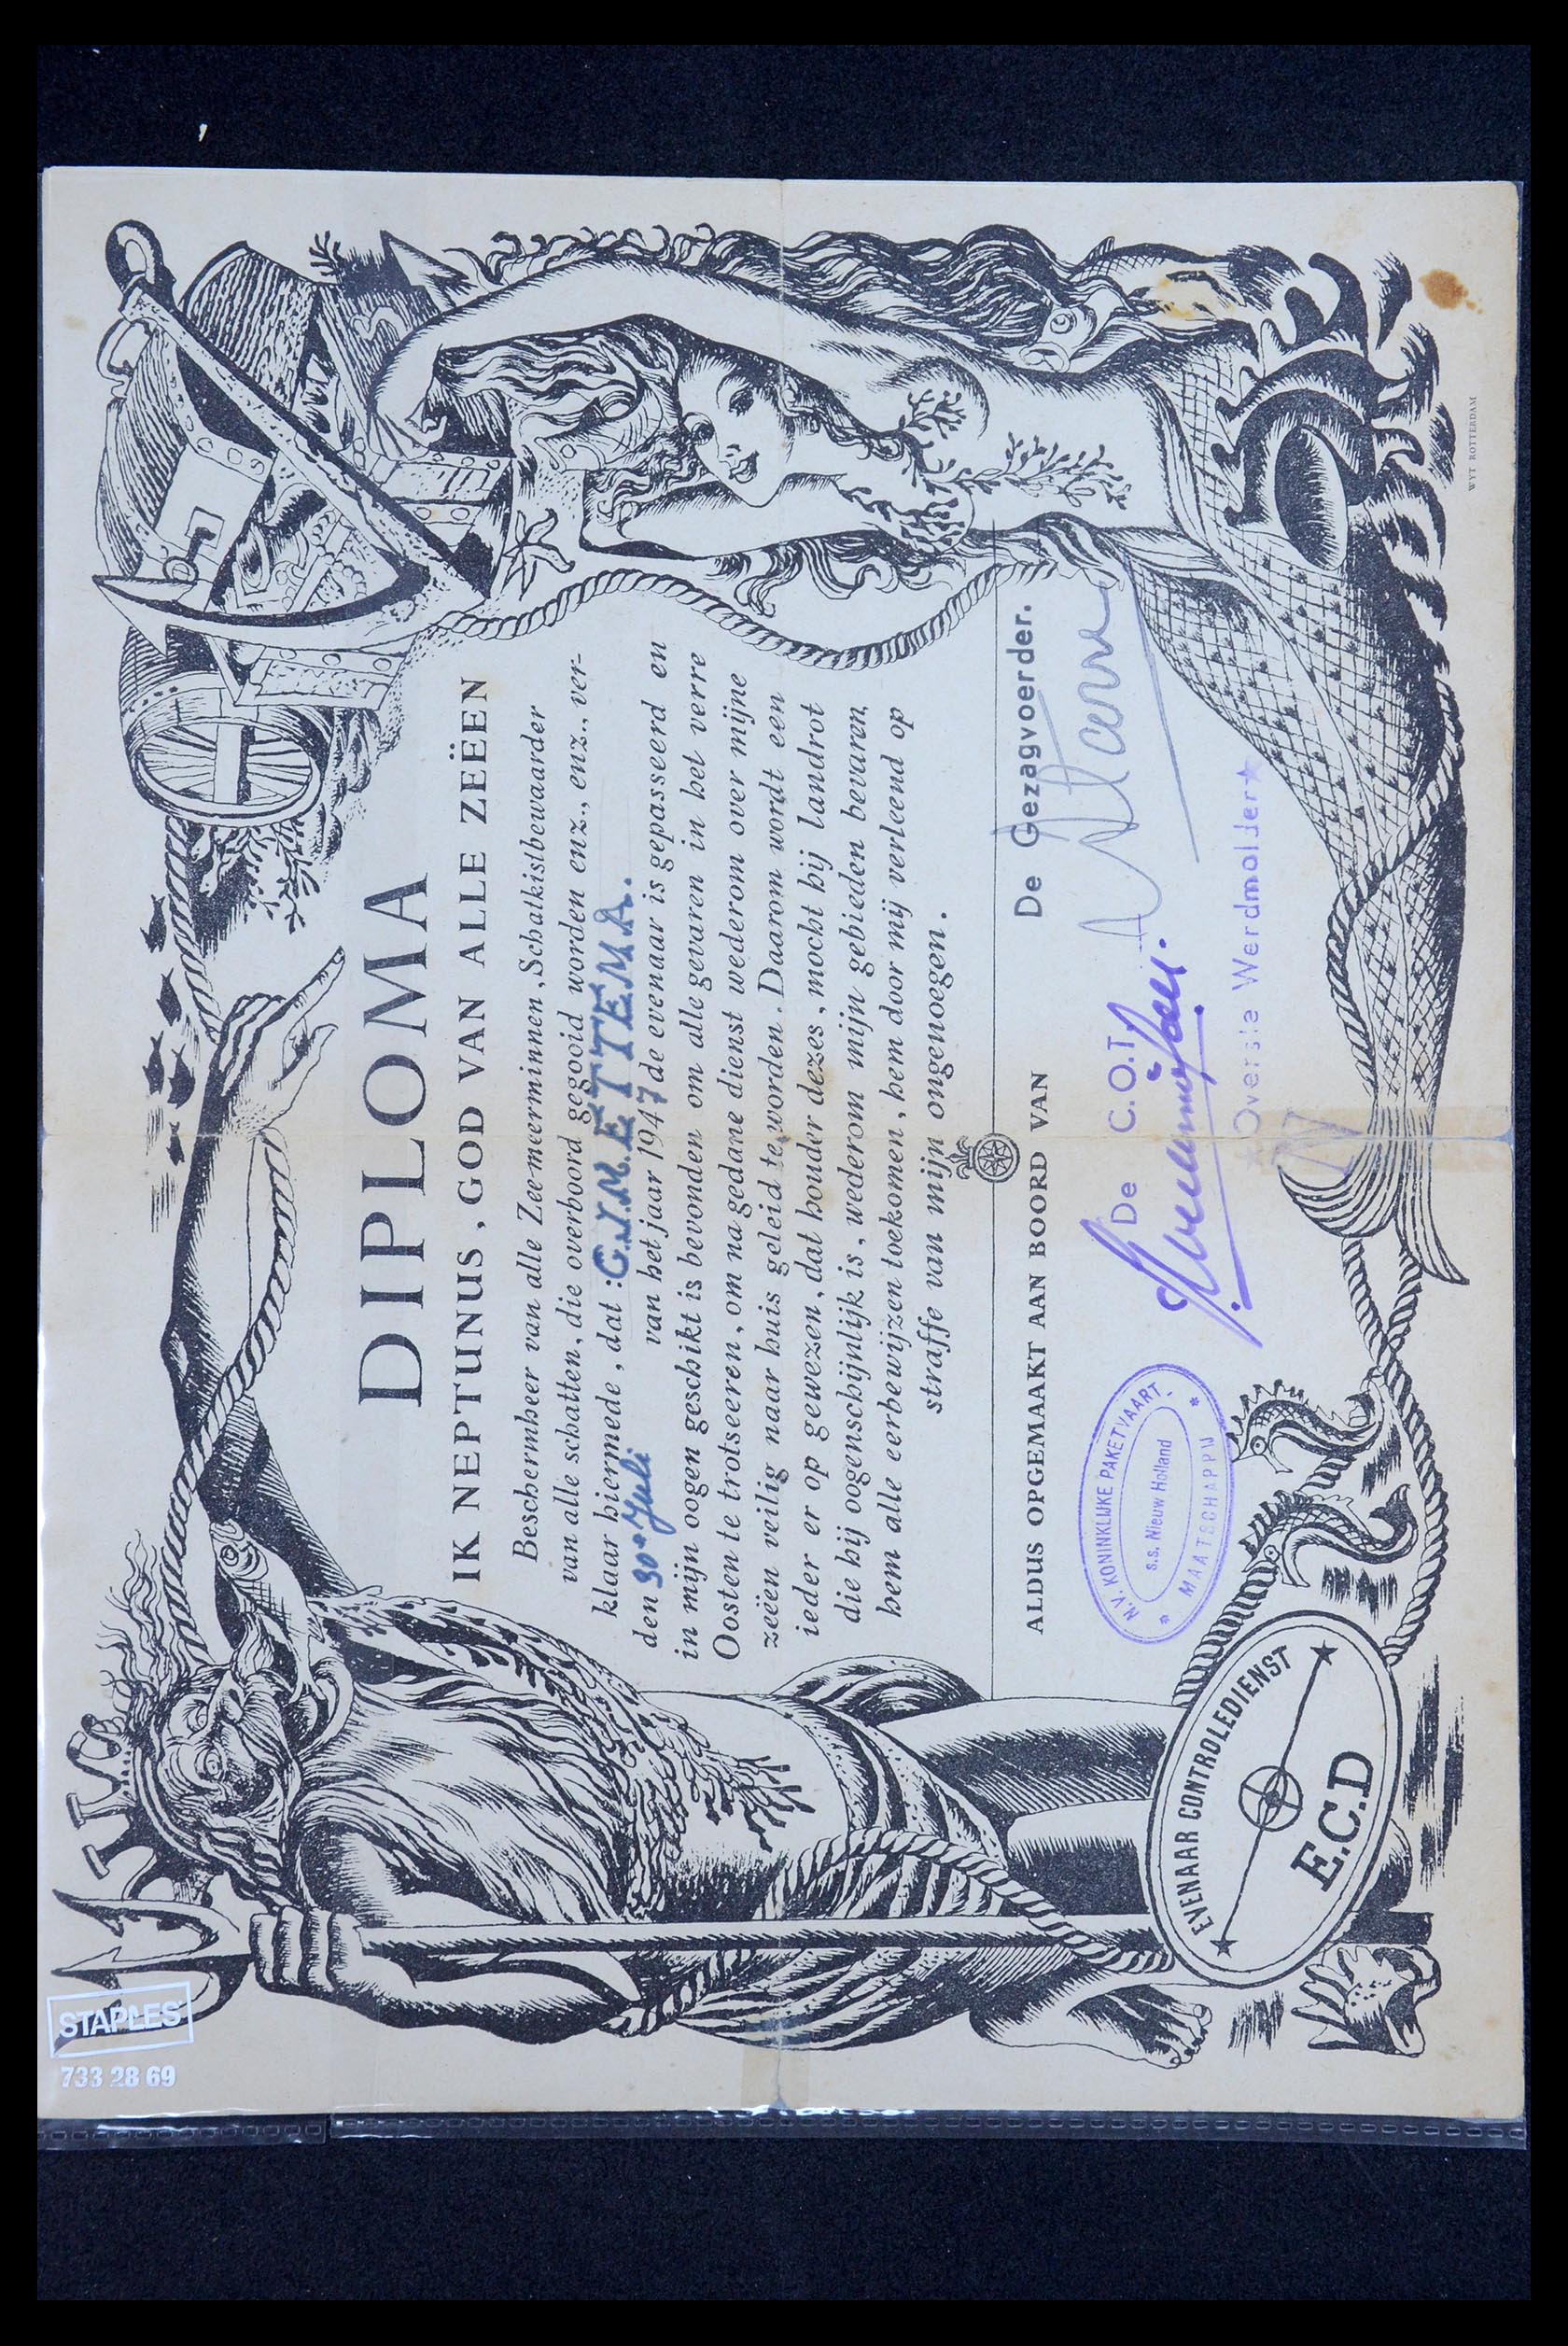 DIPLOMA
IK NEPTUNUS, GOD VAN ALLE ZEËEN
Beschermheer van alle Zeemeerminnen, Schatkistbewaarder
van alle schatten, die overboord gegooid worden enz., enz., ver-
klaar hiermede, dat : C.J.M. ETTEMA.
den 30e Juli van het jaar 1947 de evenaar is gepasseerd en
in mijn oogen geschikt is bevonden om alle gevaren in het verre
Oosten te trotseeren, om na gedane dienst wederom over mijne
zeeën veilig naar huis geleid te worden. Daarom wordt een
ieder er op gewezen, dat houder dezes, mocht hij landrot
die hij oogenschijnlijk is, wederom mijn gebieden bevaren,
hem alle eerbewijzen toekomen, hem door mij verleend op
straffe van mijn ongenoegen.
ALDUS OPGEMAAKT AAN BOORD VAN
De Gezagvoerder.
N.V. KONINKLIJKE PAKETVAART-
s.s. Nieuw Holland
* MAATSCHAPPIJ *
De C.O.T.
*Overste Werdmolder*
EVENAAR CONTROLEDIENST
E.C.D
WYT ROTTERDAM
STAPLES
733 28 69